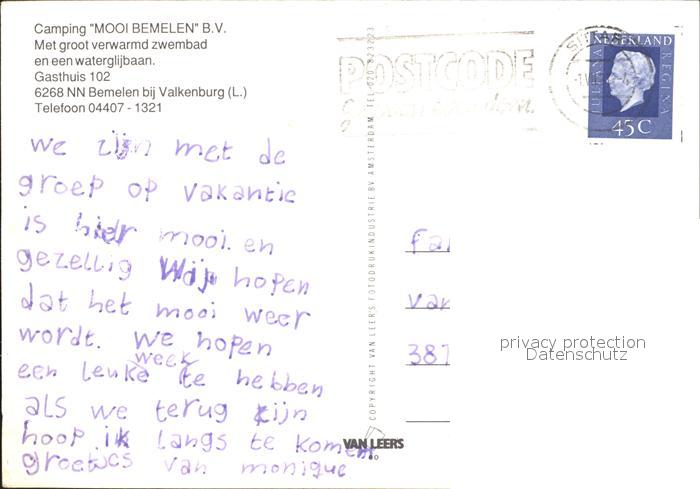 Camping "MOOI BEMELEN" B.V.
Met groot verwarmd zwembad
en een waterglijbaan.
Gasthuis 102
6268 NN Bemelen bij Valkenburg (L.)
Telefoon 04407 - 1321
POSTCODE
NEDERLAND
JULIANA REGINA
45 C
we zijn met de
groep op vakantie
is hier mooi. en
gezellig Wij hopen
dat het mooi weer
wordt. we hopen
een leuke week te hebben
als we terug zijn
hoop ik langs te komen
groetjes van monique
COPYRIGHT VAN LEERS FOTODRUKINDUSTRIE BV AMSTERDAM, TEL 020-823223
VAN LEERS
Fa
van
387
privacy protection
Datenschutz